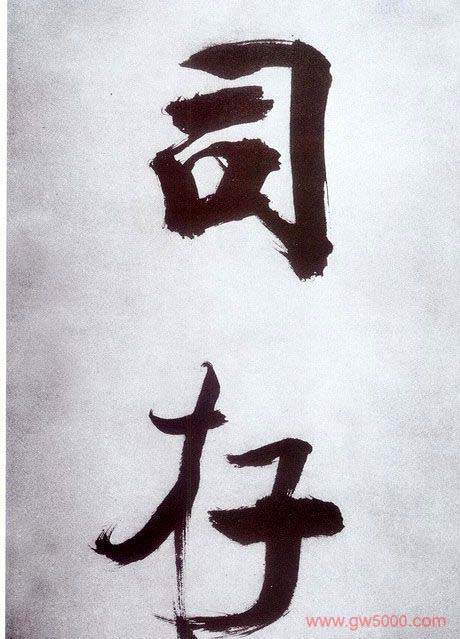 司
存
www.gw5000.com